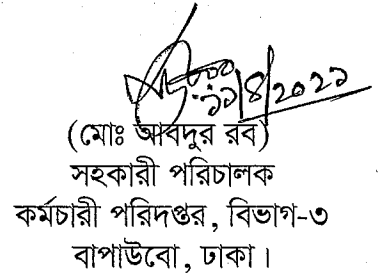 ১১/৪/২০২১
(মোঃ আবদুর রব)
সহকারী পরিচালক
কর্মচারী পরিদপ্তর, বিভাগ-৩
বাপাউবো, ঢাকা।